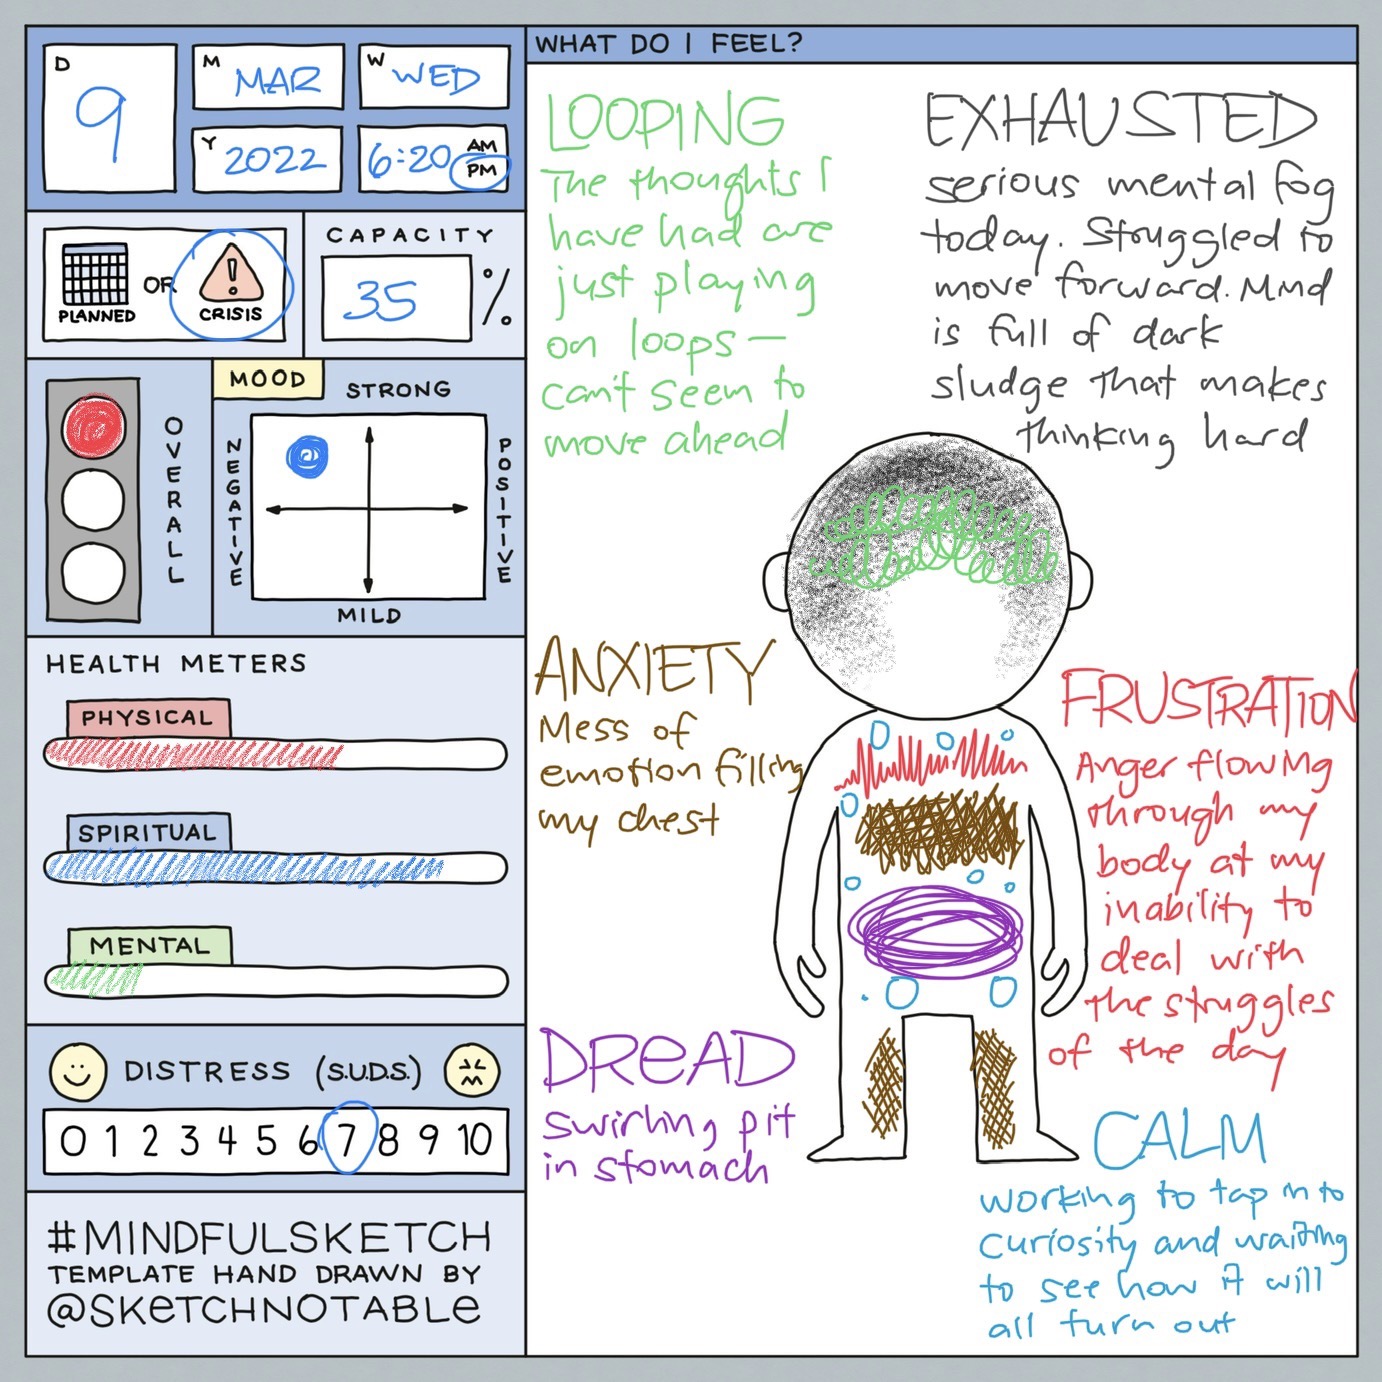 D
9
M
MAR
W
WED
Y
2022
6:20
AM
PM
PLANNED
OR
CRISIS
CAPACITY
35
%
OVERALL
MOOD
STRONG
NEGATIVE
POSITIVE
MILD
HEALTH METERS
PHYSICAL
SPIRITUAL
MENTAL
DISTRESS (S.U.D.S.)
0 1 2 3 4 5 6 7 8 9 10
#MINDFULSKETCH
TEMPLATE HAND DRAWN BY
@SKETCHNOTABLE
WHAT DO I FEEL?
LOOPING
The thoughts I
have had are
just playing
on loops —
can't seem to
move ahead
EXHAUSTED
serious mental fog
today. Struggled to
move forward. Mind
is full of dark
sludge that makes
thinking hard
ANXIETY
Mess of
emotion filling
my chest
FRUSTRATION
Anger flowing
through my
body at my
inability to
deal with
the struggles
of the day
DREAD
swirling pit
in stomach
CALM
working to tap into
curiosity and waiting
to see how it will
all turn out